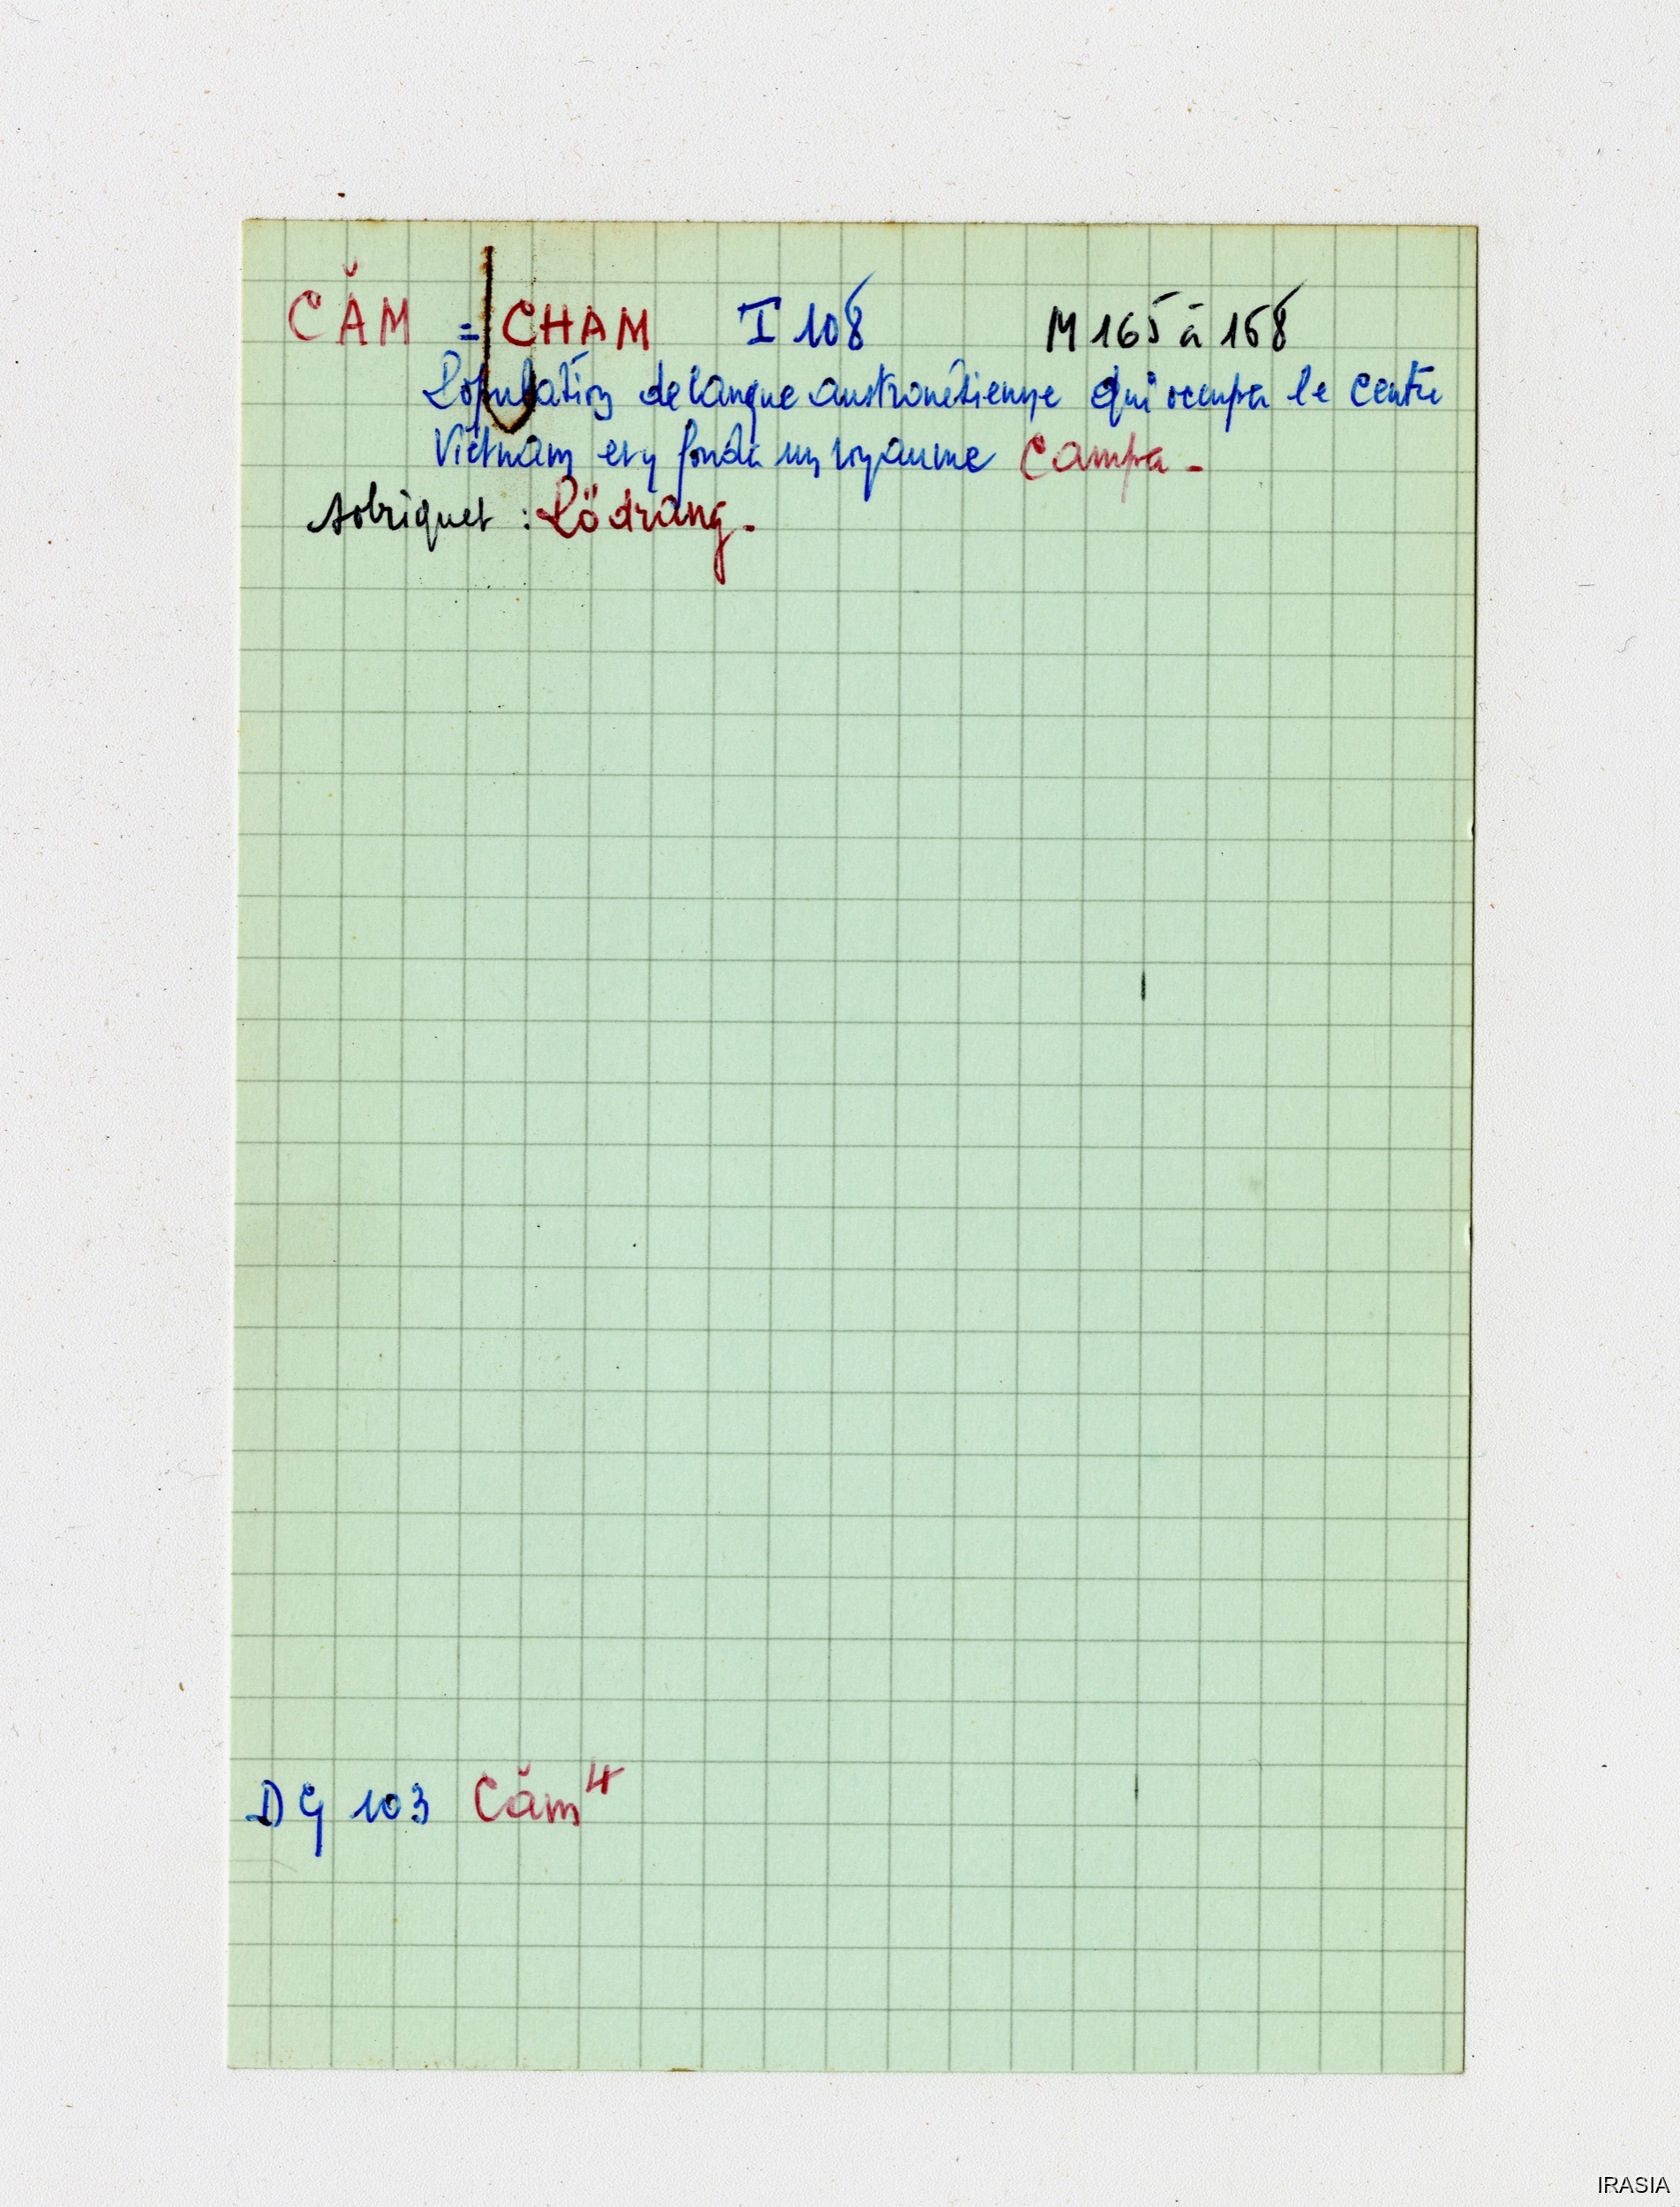 CĂM = CHAM I 108 M 165 à 168
Population de langue austronésienne qui occupa le Centre
Vietnam et y fonda un royaume Campa -
sobriquet : Lödrang.
DG 103 Căm 4
IRASIA